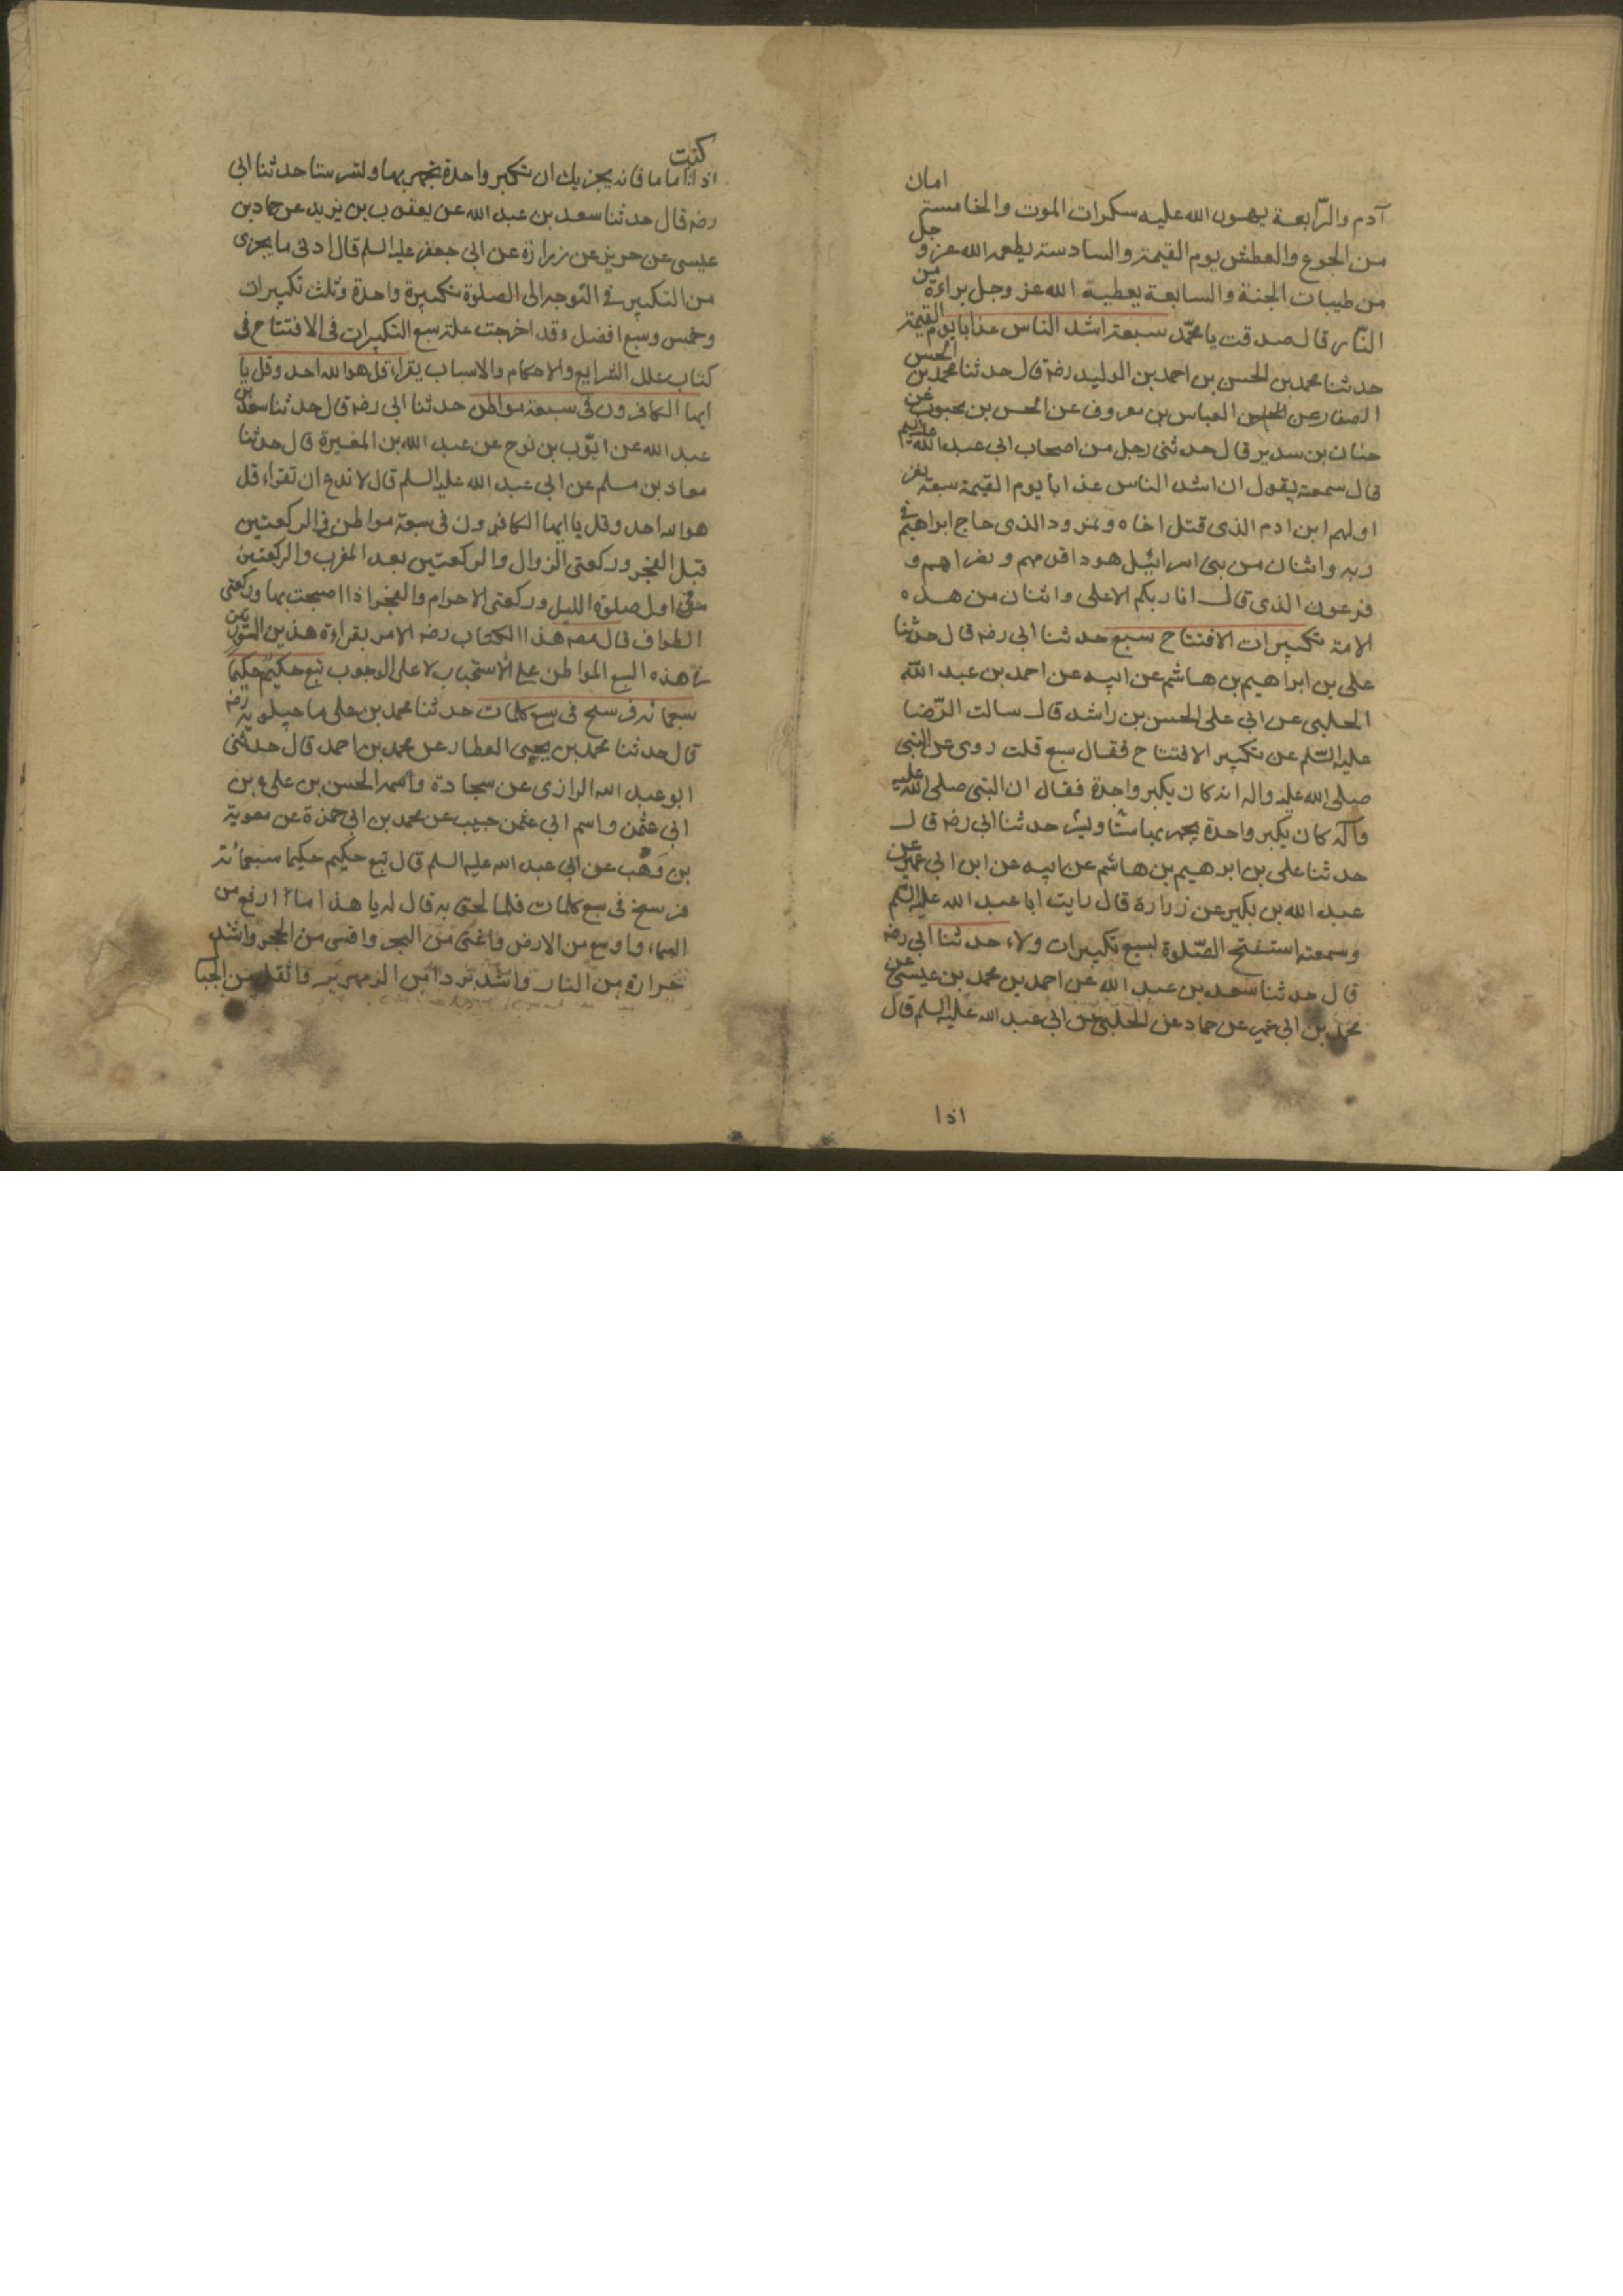 آدم والرّابعة يهون الله عليه سكرات الموت والخامسة امان
من الجوع والعطش يوم القيمة والسادسة يطعمه الله عز و جل
من طيبات الجنة والسابعة يعطيه الله عز وجل براءة من
النّار قال صدقت يا محمّد سبعة اشد الناس عذابا يوم القيمة
حدثنا محمد بن الحسن بن احمد بن الوليد رضه قال حدثنا محمد بن الحسن
الصفار عن العباس بن معروف عن الحسن بن محبوب عن
حنان بن سدير قال حدثنى رجل من اصحاب ابى عبد الله عليه السلم
قال سمعته يقول ان اشد الناس عذابا يوم القيمة سبعة نفر
اولهم ابن ادم الذى قتل اخاه ونمرود الذى حاج ابراهيم فى
ربه واثنان من بنى اسرائيل هودا قومهم ونصراهم و
فرعون الذى قال انا ربكم الاعلى واثنان من هذه
الامة تكبيرات الافتتاح سبع حدثنا ابى رضه قال حدثنا
على بن ابراهيم بن هاشم عن ابيه عن احمد بن عبد الله
الحلبى عن ابى على الحسن بن راشد قال سالت الرّضا
عليه السّلم عن تكبير الافتتاح فقال سبع قلت روى عن النبى
صلى الله عليه واله انه كان يكبر واحدة فقال ان النبى صلى الله عليه
وآله كان يكبر واحدة يجهر بها ستّا ويسر حدثنا ابى رضه قال
حدثنا على بن ابرهيم بن هاشم عن ابيه عن ابن ابى عمير عن
عبد الله بن بكير عن زرارة قال رايت ابا عبد الله عليه السّلم
وسمعته استفتح الصّلوة بسبع تكبيرات ولاء حدثنا ابى رضه
قال حدثنا سعد بن عبد الله عن احمد بن محمد بن عيسى عن
محمد بن ابى عمير عن حماد عن الحلبى عن ابى عبد الله عليه السلم قال
اذا
اذا كنت اماما فانه يجزيك ان تكبر واحدة تجهر بها ولتسر ستا حدثنا ابى
رضه قال حدثنا سعد بن عبد الله عن يعقوب بن يزيد عن حماد بن
عيسى عن حريز عن زرارة عن ابى جعفر عليه السلم قال ادنى ما يجزى
من التكبير فى التوجه الى الصلوة تكبيرة واحدة وثلث تكبيرات
وخمس وسبع افضل وقد اخرجت علة سبع التكبيرات فى الافتتاح فى
كتاب علل الشرايع والاحكام والاسباب يقراء قل هو الله احد وقل يا
ايها الكافرون فى سبعة مواطن حدثنا ابى رضه قال حدثنا سعد بن
عبد الله عن ايّوب بن نوح عن عبد الله بن المغيرة قال حدثنا
معاد بن مسلم عن ابى عبد الله عليه السلم قال لا تدع ان تقراء قل
هو الله احد وقل يا ايها الكافرون فى سبعة مواطن فى الركعتين
قبل الفجر وركعتى الزوال والركعتين بعد المغرب والركعتين
فى اول صلوة الليل وركعتى الاحرام والفجر اذا اصبحت بها وركعتى
الطواف قال مصه هذا الكتاب رضه الامر بقراءة هذين السّورتين
فى هذه السبع المواطن على الاستحباب لا على الوجوب تبع حكيم حكيما
سبعمائة فرسخ فى سبع كلمات حدثنا محمد بن على ماجيلويه رضه
قال حدثنا محمد بن يحيى العطار عن محمد بن احمد قال حدثنى
ابو عبد الله الرازى عن سجادة واسمه الحسن بن على بن
ابى عثمن واسم ابى عثمن حبيب عن محمد بن ابى حمزة عن معوية
بن وَهْب عن ابى عبد الله عليه السلم قال تبع حكيم حكيما سبعمائة
فرسخ فى سبع كلمات فلما لحق به قال له يا هذا ما ارفع من
السماء واوسع من الارض واغنى من البحر واقسى من الحجر واشد
حرارة من النار واشد بردا من الزمهرير واثقل من الجبا